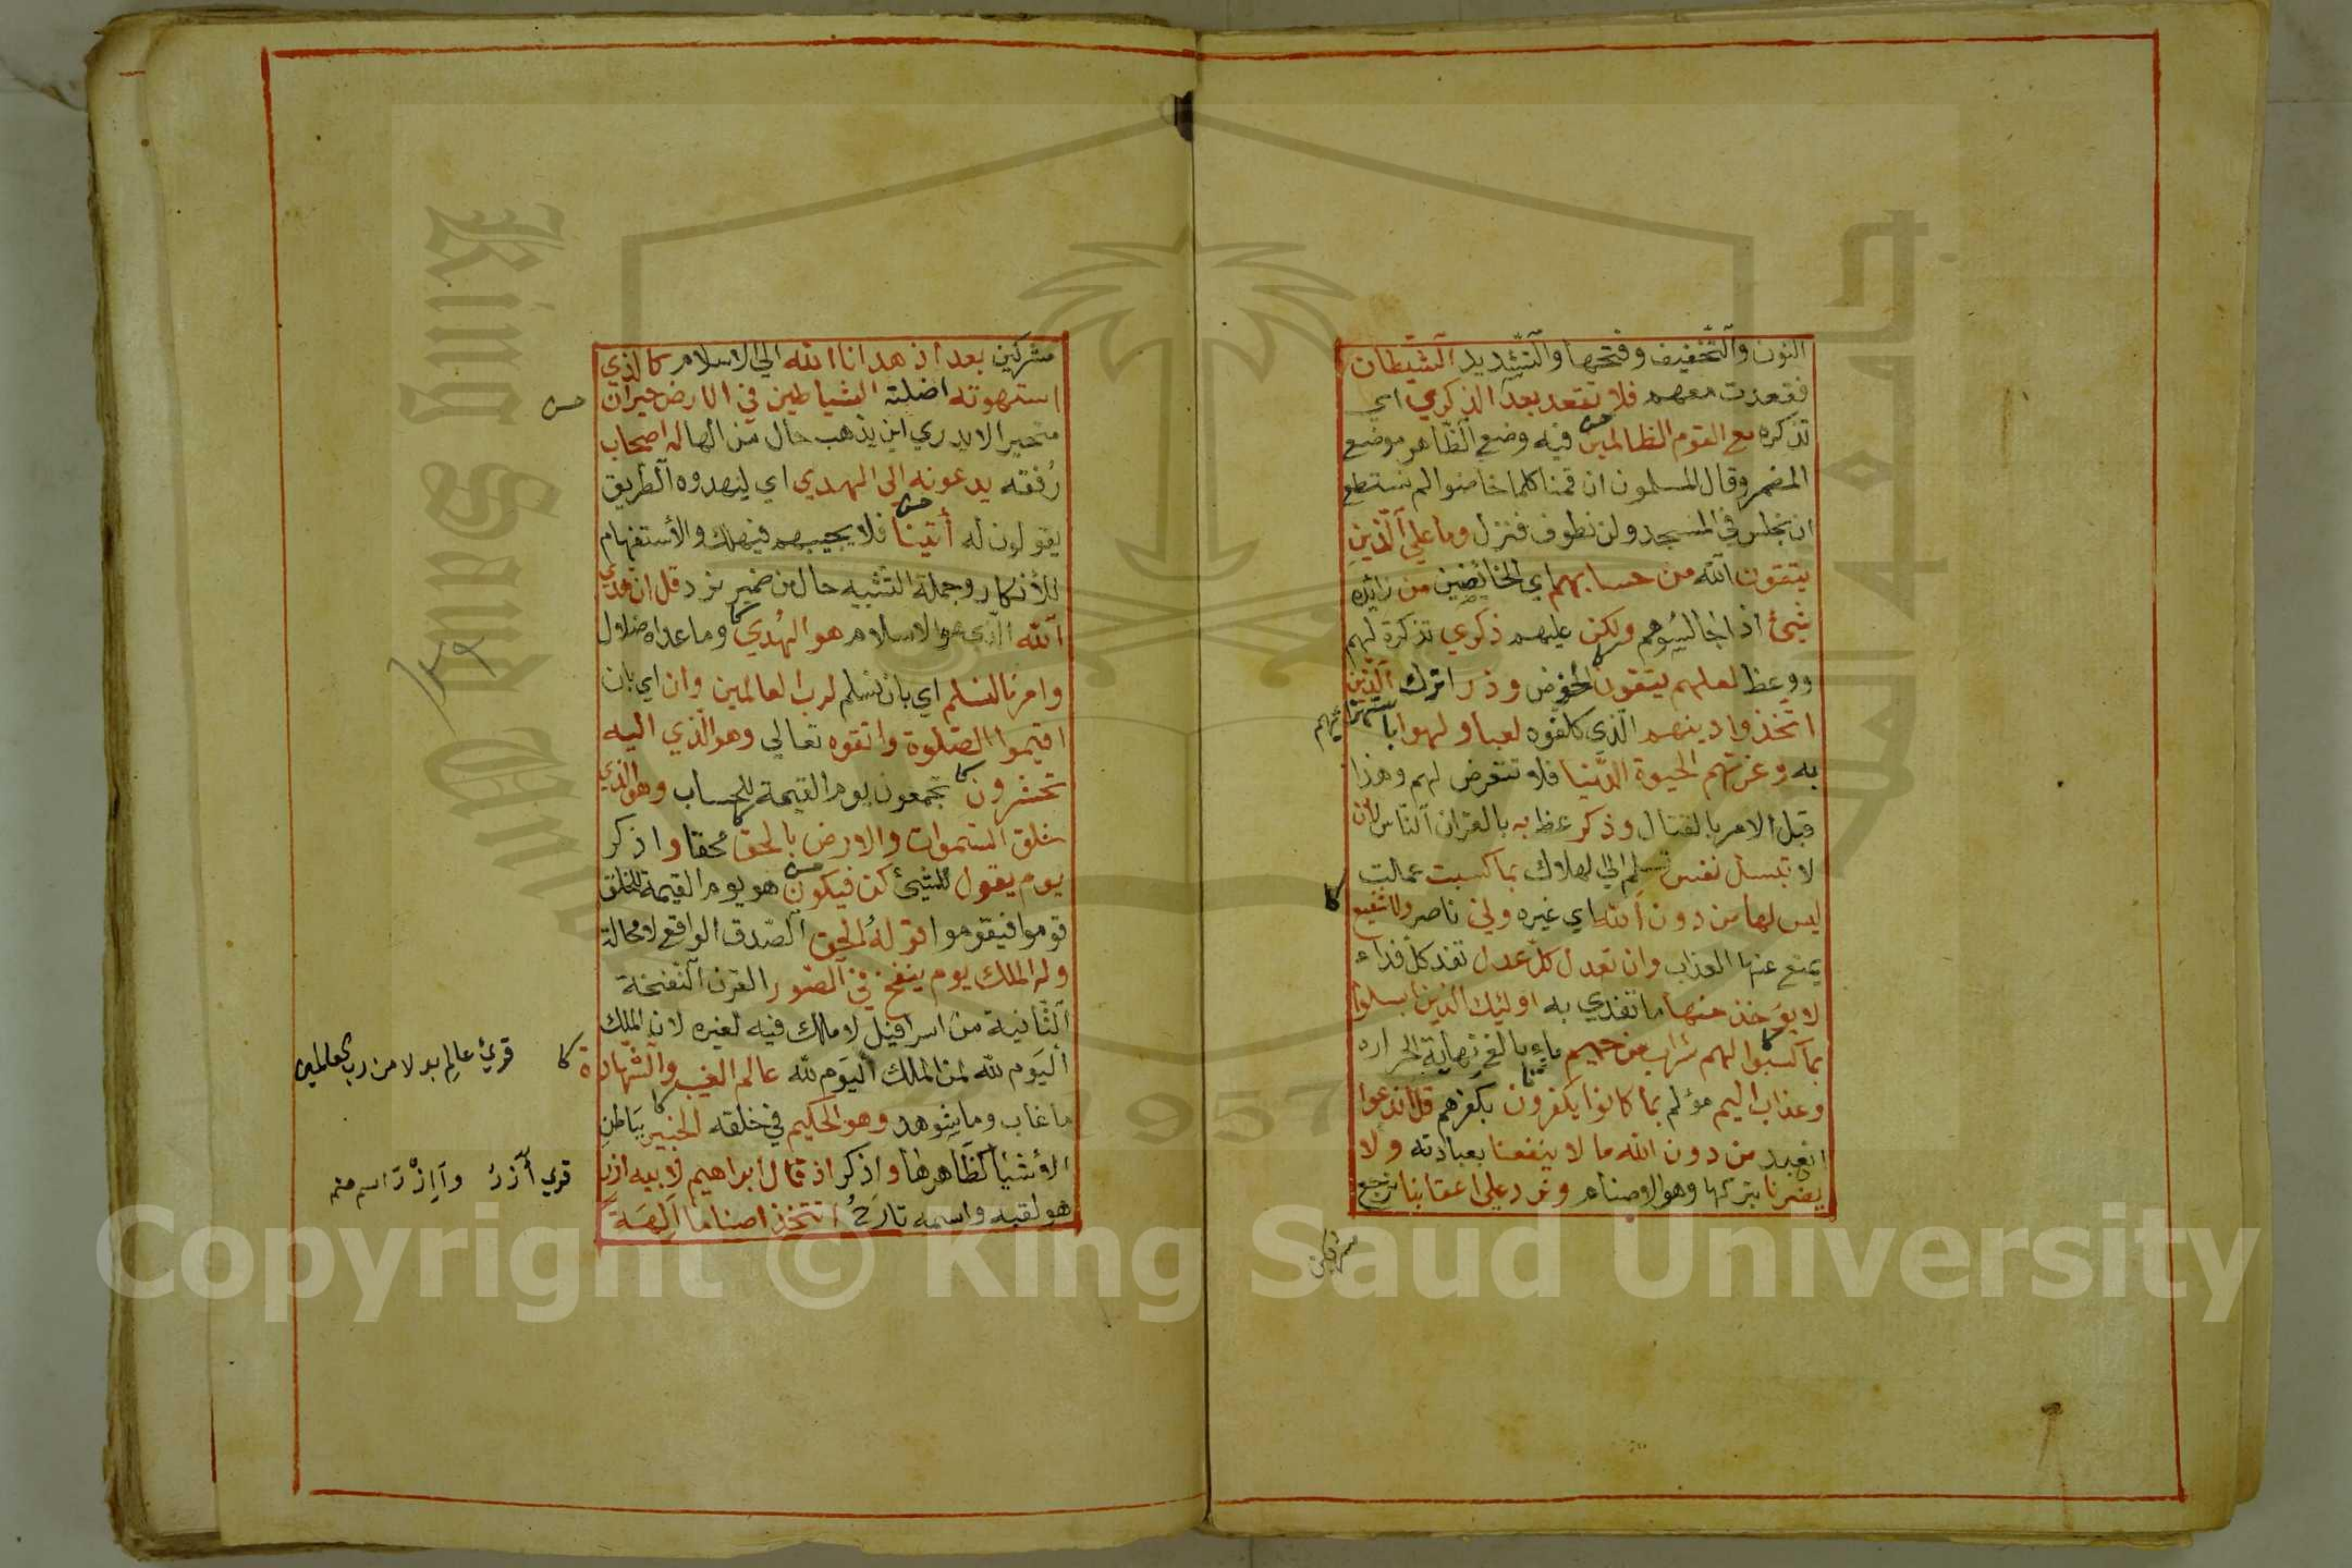 النون والتخفيف وفتحها والتشديد الشيطان
فقعدت معهم فلا تقعد بعد الذكري اي
تذكره مع القوم الظالمين فيه وضع الظاهر موضع
المضمر وقال المسلمون ان قمنا كلما خاضوا لم نستطع
ان نجلس في المسجد ولن نطوف فنزل وما علي الذين
يتقون الله من حسابهم اي الخائضين من زائده
شيئ اذا جالسوهم ولكن عليهم ذكري تذكرة لهم
ووعظ لعلهم يتقون الخوض وذر اترك الذين
اتخذوا دينهم الذي كلفوه لعبا ولهوا باستهزائهم
به وغرتهم الحيوة الدنيا فلا تتعرض لهم وهذا
قبل الامر بالقتال وذكر عظ به بالقران الناس لان
لا تبسل نفس تسلم الي الهلاك بما كسبت عملت
ليس لها من دون الله اي غيره ولي ناصر ولا شفيع
يمنع عنها العذاب وان تعدل كل عدل تفد كل فداء
لا يؤخذ منها ما تفدي به اوليك الذين ابسلوا
بما كسبوا لهم شراب من حميم ماء بالغ نهاية الحراره
وعذاب اليم مؤلم بما كانوا يكفرون بكفرهم قل اندعوا
انعبد من دون الله ما لا ينفعنا بعبادته ولا
يضرنا بتركها وهو الاصنام ونرد علي اعقابنا نرجع
مشركين
مشركين بعد اذ هدانا الله الي الاسلام كالذي
استهوته اضلته الشياطين في الارض حيران
متحيرا لا يدري اين يذهب حال من الها له اصحاب
رفقه يدعونه الي الهدي اي ليهدوه الطريق
يقولون له أئتنا فلا يجيبهم فيهلك والأستفهام
للأنكار وجملة التشبيه حال من ضمير نرد قل ان هدي
الله الذي هو الاسلام هو الهُدي وما عداه ضلال
وامرنا لنسلم اي بان نسلم لرب العالمين وان اي بان
اقيموا الصلوة واتقوه تعالي وهو الذي اليه
تحشرون تجمعون يوم القيمة للحساب وهو الذي
خلق السموات والارض بالحق محقا واذكر
يوم يقول للشيئ كن فيكون هو يوم القيمة للخلق
قوموا فيقوموا قوله الحق الصدق الواقع لا محالة
وله الملك يوم ينفخ في الصور القرن النفخة
الثانية من اسرافيل لا ملك فيه لغيره لان الملك
اليوم لله لمن الملك اليوم لله عالم الغيب والشهادة
ما غاب وما شوهد وهو الحكيم في خلقه الخبير بباطن
الأشيأ كظاهرها واذكر اذ قال ابراهيم لابيه ازر
هو لقبه واسمه تارخ اتتخذ اصناما آلهة
قرئ عالِم بدلا من رب العالمين
قري أآزرُ